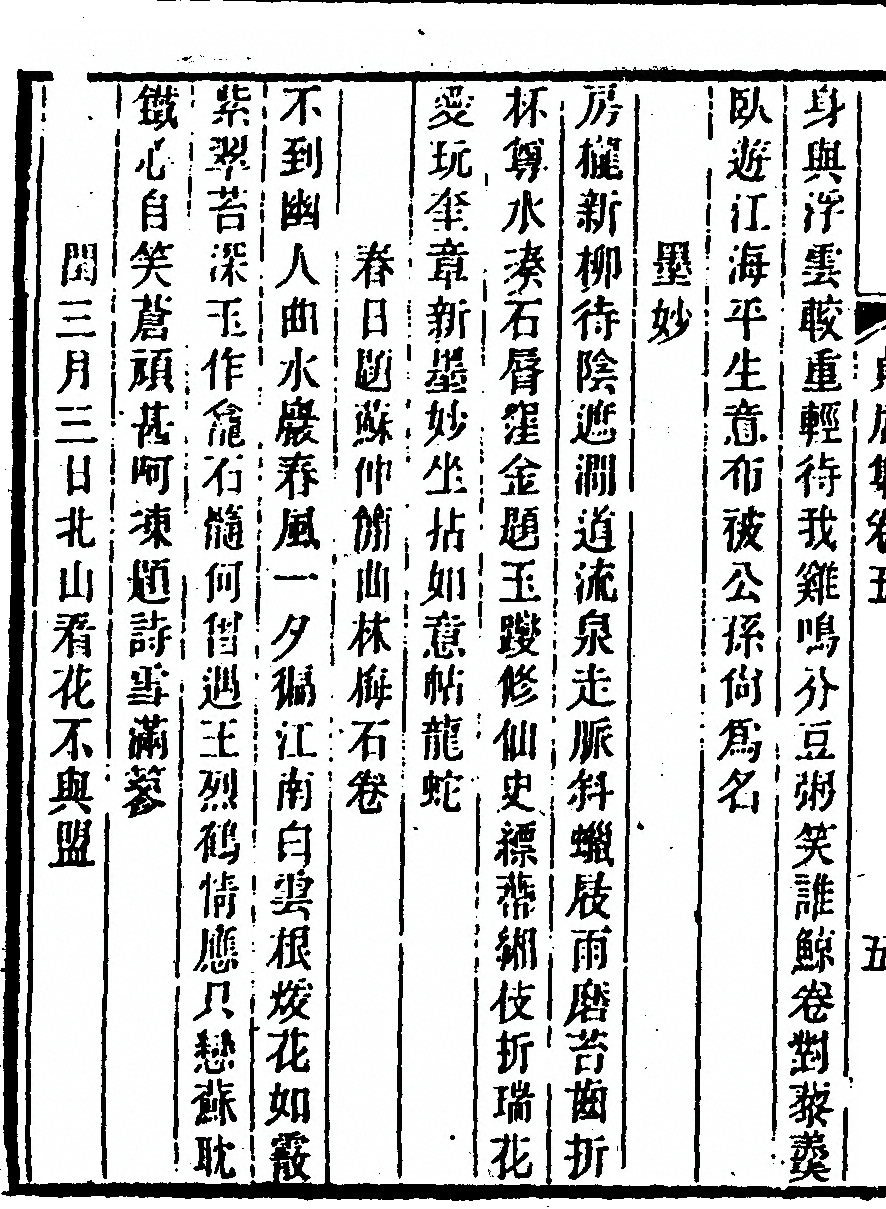 五
身與浮雲較重輕待我雞鳴分豆粥笑誰鯨卷對藜羹
臥遊江海平生意布被公孫尙爲名
墨妙
房櫳新柳待陰遮澗道流泉走脈斜蠟屐雨磨苔齒折
杯尊水湊石脣窪金題玉躞修仙史縹蔕緗枝折瑞花
愛玩奎章新墨妙坐拈如意帖龍蛇
春日題蘇仲簡曲林梅石卷
不到幽人曲水巖春風一夕徧江南白雲根煖花如霰
紫翠苔深玉作龕石髓何曾遇王烈鶴情應只戀蘇耽
鐵心自笑蒼頑甚呵凍題詩雪滿篸
閏三月三日北山看花不與盟